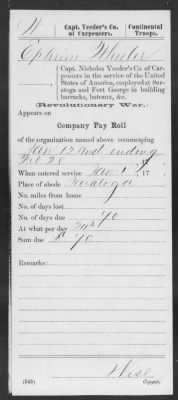 W | Capt. Veeder's Co. of Carpenters. | Continental Troops.
Ephrim Wheeler
Capt. Nicholas Veeder's Co of Carpenters in the service of the United States of America, employed at Saratoga and Fort George in building barracks, bateaux, &c.
(Revolutionary War.)
Appears on
Company Pay Roll
of the organization named above commencing
Jan 12 and ending
Feb 28, 17
When entered service Jan 1, 17
Place of abode Saratoga
No. miles from home
No. of days lost
No. of days due 70
At what per day
Sum due $ 70
Remarks:
(545)
Copyist.